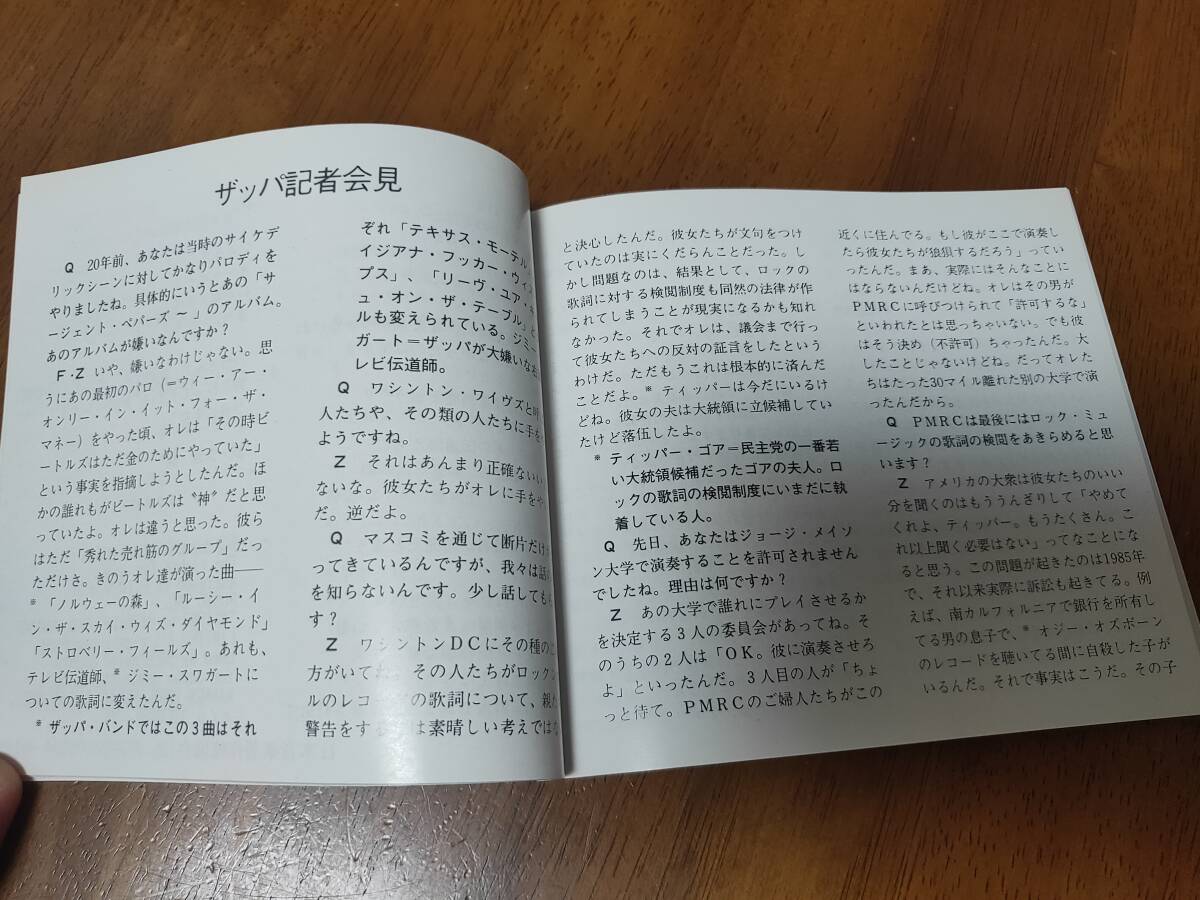 ザッパ記者会見
Q 20年前、あなたは当時のサイケデ
リックシーンに対してかなりパロディを
やりましたね。具体的にいうとあの「サ
ージェント・ペパーズ〜」のアルバム。
あのアルバムが嫌いなんですか？
F・Z いや、嫌いなわけじゃない。思
うにあの最初のパロ（＝ウィー・アー・
オンリー・イン・イット・フォー・ザ・
マネー）をやった頃、オレは「その時ビ
ートルズはただ金のためにやっていた」
という事実を指摘しようとしたんだ。ほ
かの誰れもがビートルズは〝神〟だと思
っていたよ。オレは違うと思った。彼ら
はただ「秀れた売れ筋のグループ」だっ
ただけさ。きのうオレ達が演った曲――
※「ノルウェーの森」、「ルーシー・イ
ン・ザ・スカイ・ウィズ・ダイヤモンド」
「ストロベリー・フィールズ」。あれも、
テレビ伝道師、※ジミー・スワガートに
ついての歌詞に変えたんだ。
※ザッパ・バンドではこの3曲はそれ
ぞれ「テキサス・モーテル」
イジアナ・フッカー・ウィズ
プス」、「リーヴ・ユア・
ュ・オン・ザ・テーブル」と
ルも変えられている。ジミー
ガート＝ザッパが大嫌いな
レビ伝道師。
Q ワシントン・ワイヴズと
人たちや、その類の人たちに手を
ようですね。
Z それはあんまり正確ないい
ないな。彼女たちがオレに手をや
だ。逆だよ。
Q マスコミを通じて断片だけ
ってきているんですが、我々は話の
を知らないんです。少し話してもら
す？
Z ワシントンDCにその種の
方がいてた その人たちがロック
ルのレコー の歌詞について、親た
警告をする は素晴しい考えではな
と決心したんだ。彼女たちが文句をつけ
ていたのは実にくだらんことだった。し
かし問題なのは、結果として、ロックの
歌詞に対する検閲制度も同然の法律が作
られてしまうことが現実になるかも知れ
なかった。それでオレは、議会まで行っ
て彼女たちへの反対の証言をしたという
わけだ。ただもうこれは根本的に済んだ
ことだよ。※ティッパーは今だにいるけ
どね。彼女の夫は大統領に立候補してい
たけど落伍したよ。
※ティッパー・ゴア＝民主党の一番若
い大統領候補だったゴアの夫人。ロ
ックの歌詞の検閲制度にいまだに執
着している人。
Q 先日、あなたはジョージ・メイソ
ン大学で演奏することを許可されません
でしたね。理由は何ですか？
Z あの大学で誰れにプレイさせるか
を決定する3人の委員会があってね。そ
のうちの2人は「OK。彼に演奏させろ
よ」といったんだ。3人目の人が「ちょ
っと待て。PMRCのご婦人たちがこの
近くに住んでる。もし彼がここで演奏し
たら彼女たちが狼狽するだろう」ってい
ったんだ。まあ、実際にはそんなことに
はならないんだけどね。オレはその男が
PMRCに呼びつけられて「許可するな」
といわれたとは思っちゃいない。でも彼
はそう決め（不許可）ちゃったんだ。大
したことじゃないけどね。だってオレた
ちはたった30マイル離れた別の大学で演
ったんだから。
Q PMRCは最後にはロック・ミュ
ージックの歌詞の検閲をあきらめると思
います？
Z アメリカの大衆は彼女たちのいい
分を聞くのはもううんざりして「やめて
くれよ、ティッパー。もうたくさん。こ
れ以上聞く必要はない」ってなことにな
ると思う。この問題が起きたのは1985年
で、それ以来実際に訴訟も起きてる。例
えば、南カルフォルニアで銀行を所有し
てる男の息子で、※オジー・オズボーン
のレコードを聴いてる間に自殺した子が
いるんだ。それで事実はこうだ。その子